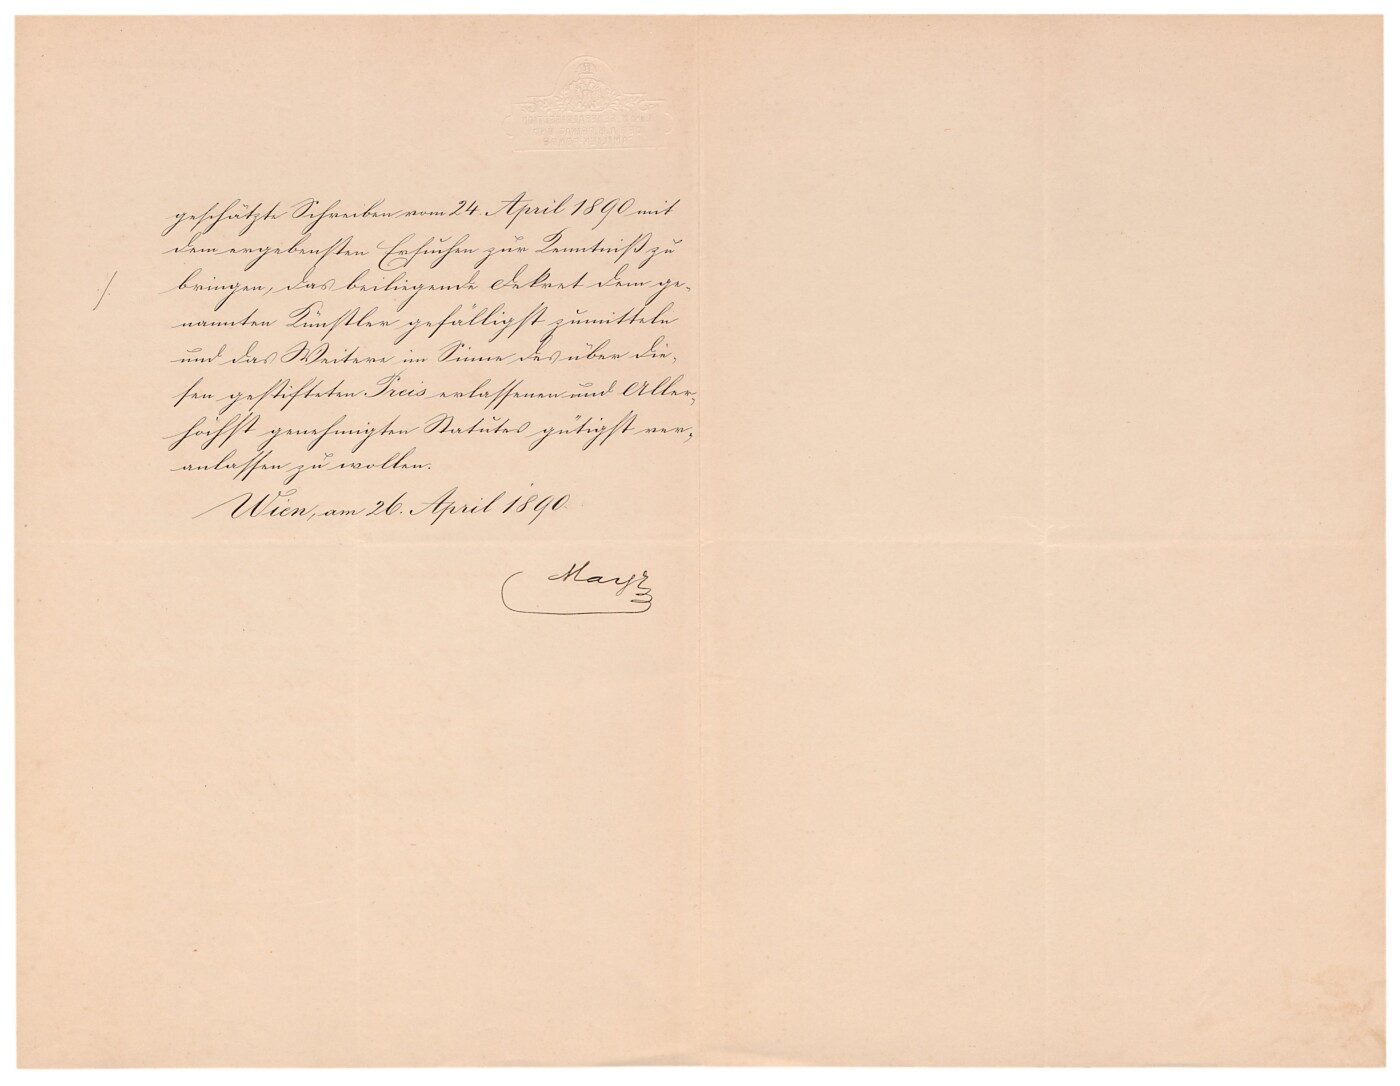 geschätzte Schreiben vom 24. April 1890 mit
dem ergebensten Ersuchen zur Kenntniß zu
./. bringen, das beiliegende Dekret dem ge-
nannten Künstler gefälligst zumitteln
und das Weitere im Sinne des über die-
sen gestifteten Preis erlassenen und Aller-
höchst genehmigten Statutes gütigst ver-
anlassen zu wollen.
Wien, am 26. April 1890.
Mayr